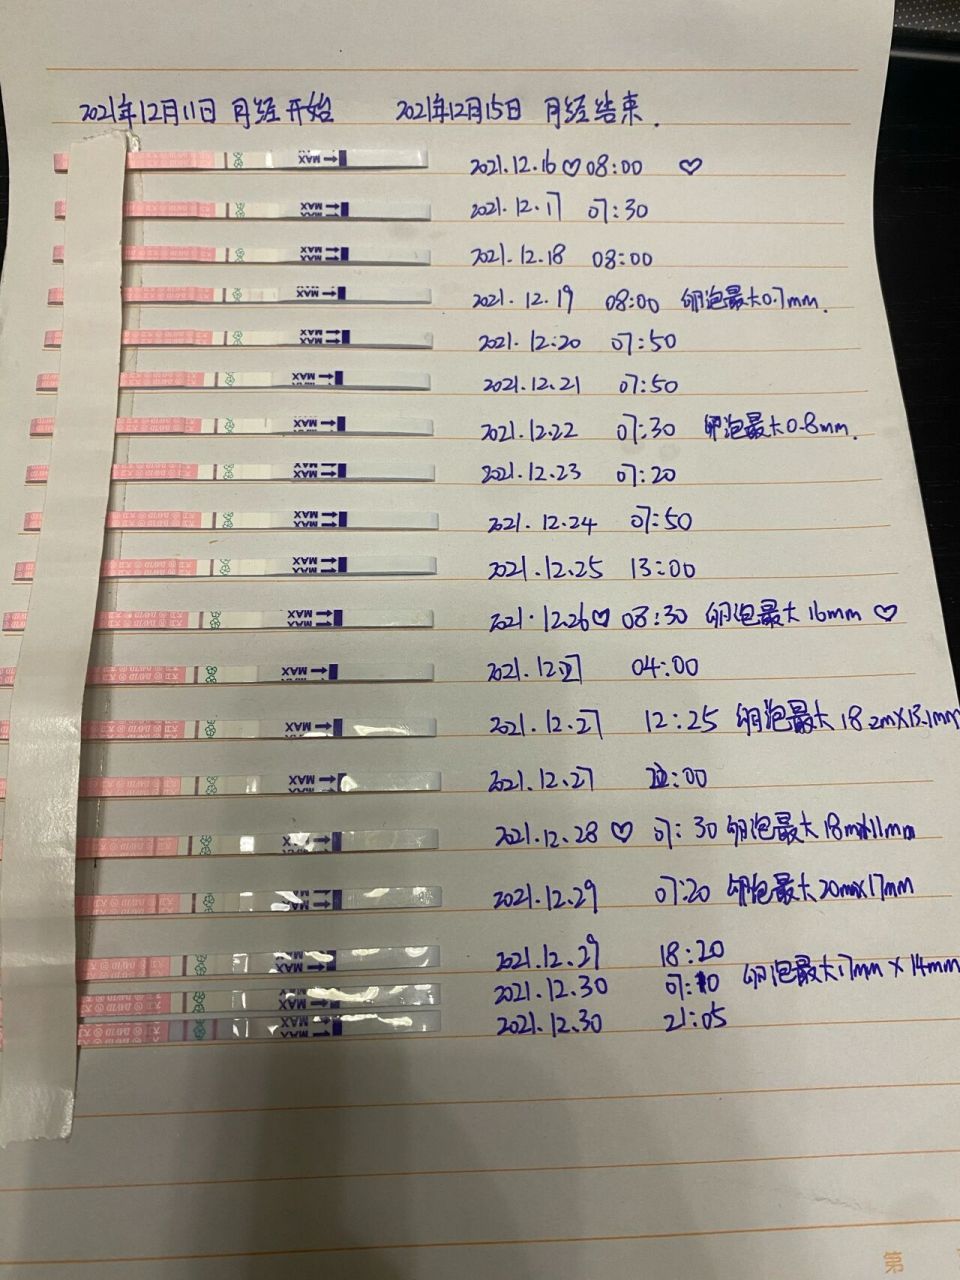 2021年12月11日 月经开始 2021年12月15日 月经结束.
MAX 2021.12.16♡08:00 ♡
MAX 2021.12.17 07:30
MAX 2021.12.18 08:00
MAX 2021.12.19 08:00 卵泡最大0.7mm.
MAX 2021.12.20 07:50
MAX 2021.12.21 07:50
MAX 2021.12.22 07:30 卵泡最大0.8mm.
MAX 2021.12.23 07:20
MAX 2021.12.24 07:50
MAX 2021.12.25 13:00
MAX 2021.12.26♡ 08:30 卵泡最大16mm ♡
MAX 2021.12.27 04:00
MAX 2021.12.27 12:25 卵泡最大18.2mX13.1mm
MAX 2021.12.27 :00
2021.12.28 ♡ 07:30 卵泡最大18mm11mm
MAX 2021.12.29 07:20 卵泡最大20mmx17mm
MAX 2021.12.29 18:20
MAX 2021.12.30 07:10 卵泡最大17mm X 14mm
MAX 2021.12.30 21:05
第